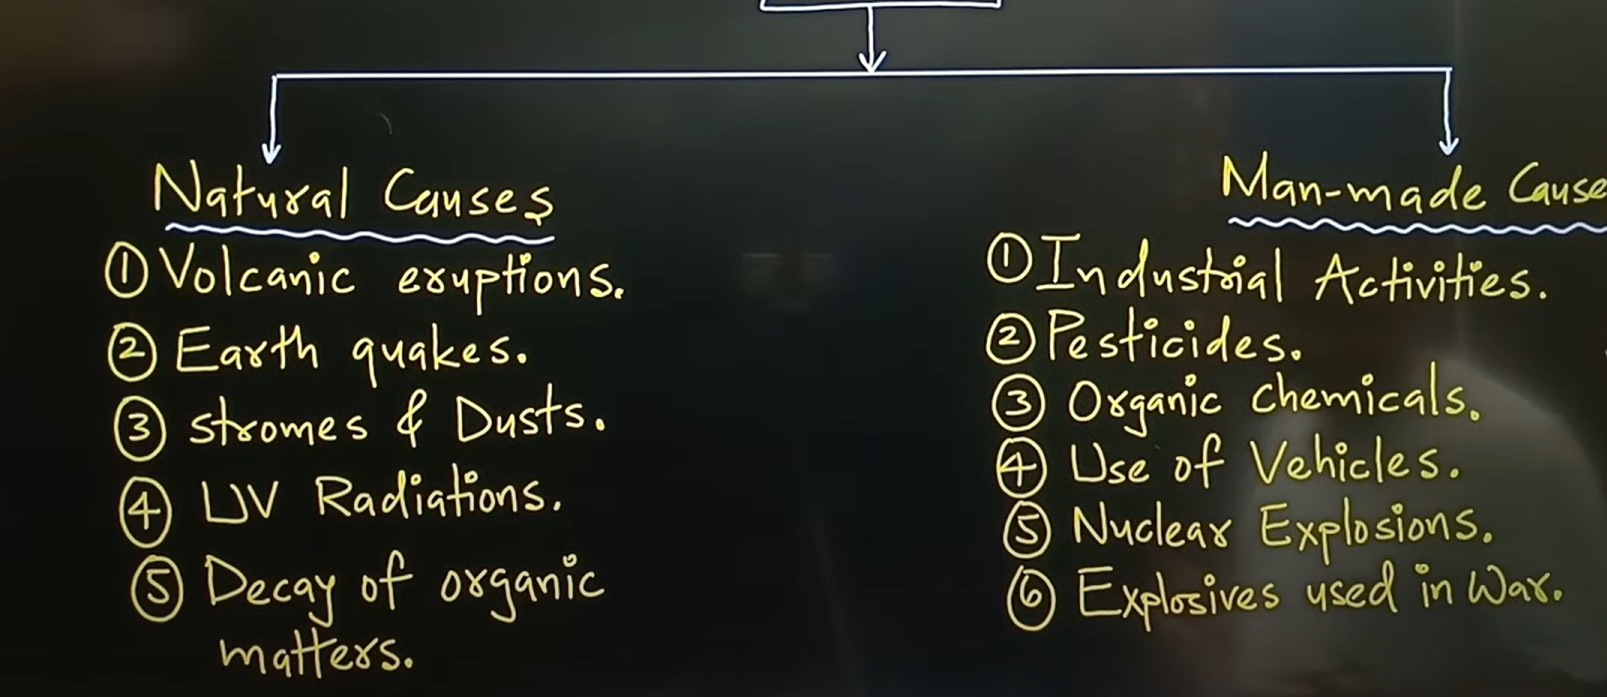 Natural Causes
① Volcanic eruptions.
② Earth quakes.
③ stromes & Dusts.
④ UV Radiations.
⑤ Decay of organic
matters.
Man-made Cause
① Industrial Activities.
② Pesticides.
③ Organic chemicals.
④ Use of Vehicles.
⑤ Nuclear Explosions.
⑥ Explosives used in War.